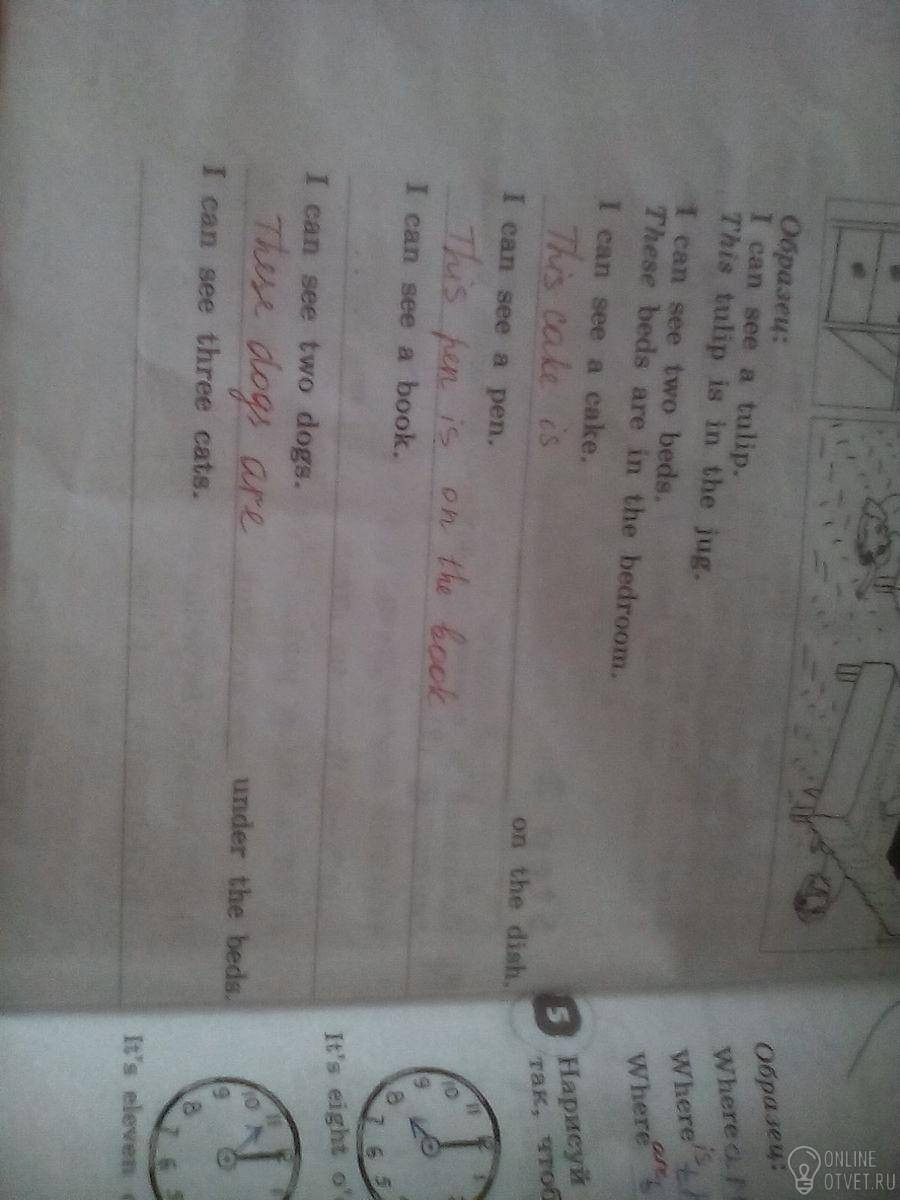 Образец:
I can see a tulip.
This tulip is in the jug.
I can see two beds.
These beds are in the bedroom.
I can see a cake.
This cake is on the dish.
I can see a pen.
This pen is on the book
I can see a book.
I can see two dogs.
These dogs are under the beds.
I can see three cats.
Образец:
Where
Where is
Where are
5 Нарисуй
так,
10 11 12 1
9
8 7 6 5
It's eight o'
10 11 12
9
8 7 6 5
It's eleven
ONLINE
OTVET.RU